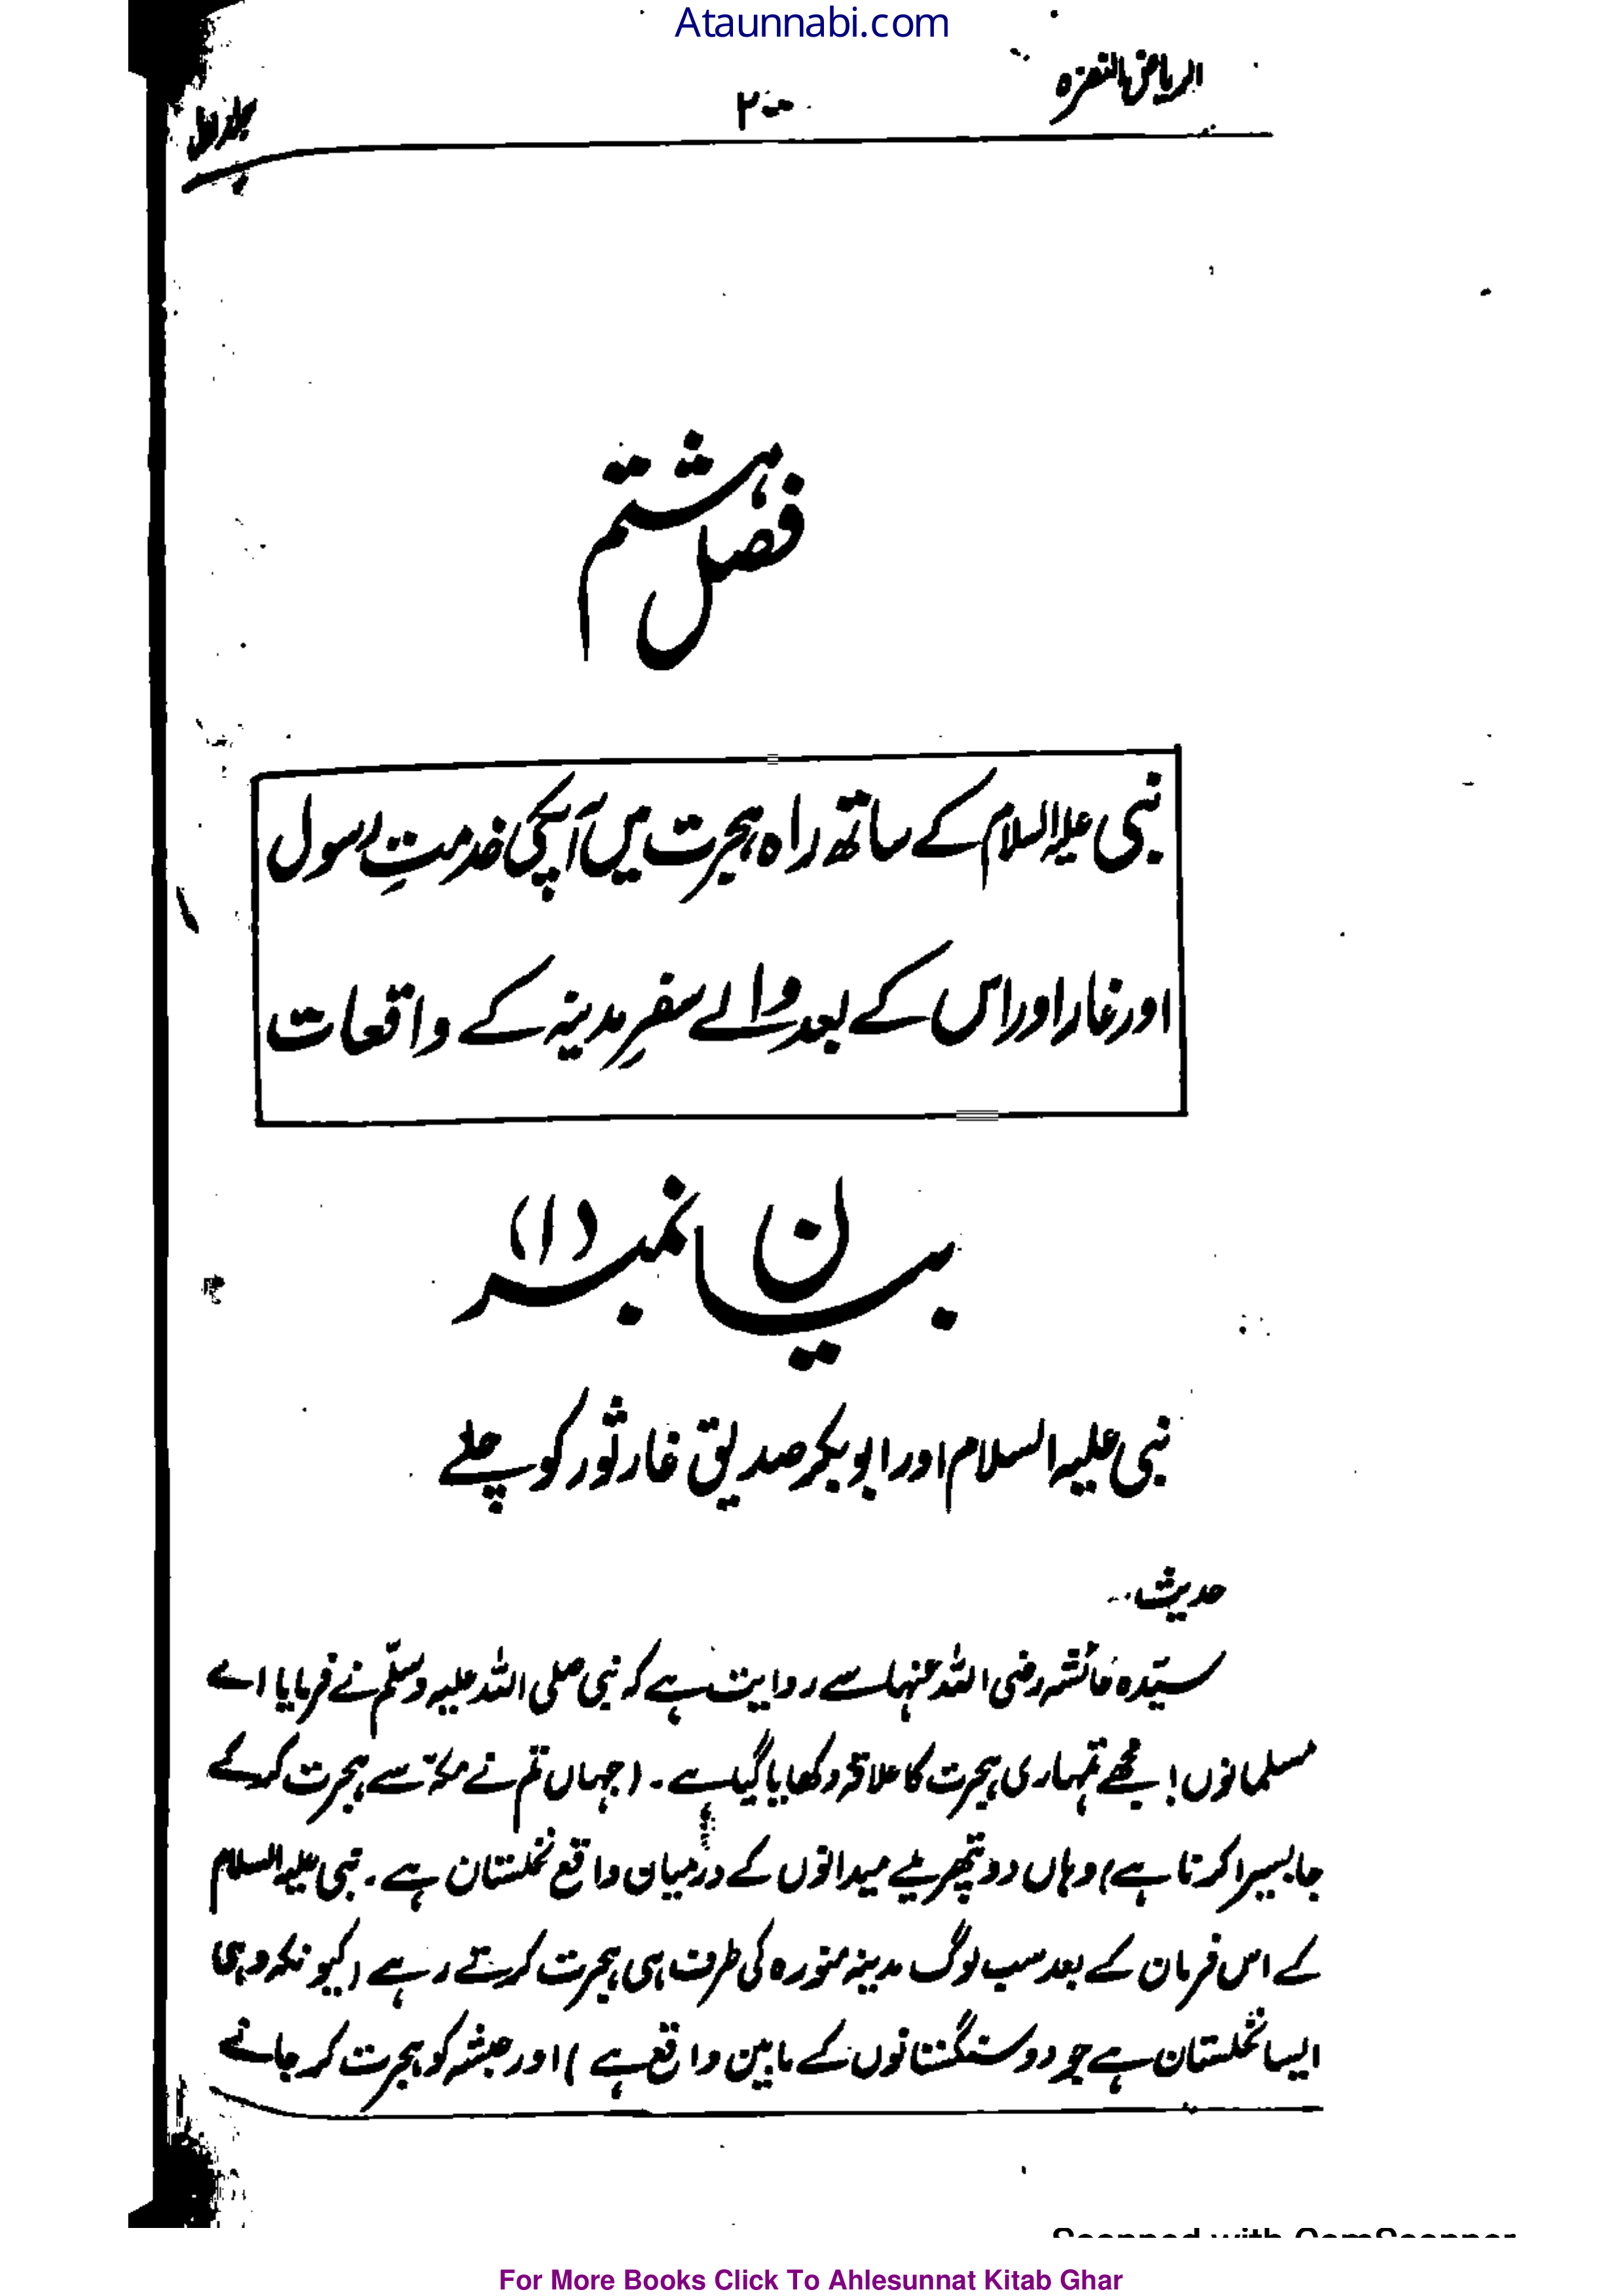 Ataunnabi.com
الریاض النضرہ
۲۰۰
جلد اول
فصل ہشتم
نبی علیہ السلام کے ساتھ راہ ہجرت میں آپکی خدمتِ رسول
اور غار اور اس کے بعد والے سفرِ مدینہ کے واقعات
بیان نمبر (۱)
نبی علیہ السلام اور ابوبکر صدیق غار ثور کو چلے
حدیث..
سیّدہ عائشہ رضی اللہ عنہا سے روایت ہے کہ نبی صلی اللہ علیہ وسلّم نے فرمایا اے
مسلمانوں! مجھے تمہاری ہجرت کا علاقہ دکھایا گیا ہے ۔ (جہاں تم نے مکہ سے ہجرت کر کے
جا بسیرا کرنا ہے) وہاں دو پتھریلے میدانوں کے درمیان واقع نخلستان ہے۔ نبی علیہ السلام
کے اس فرمان کے بعد سب لوگ مدینہ منورہ کی طرف ہی ہجرت کرتے رہے (کیونکہ وہی
ایسا نخلستان ہے جو دو سنگستانوں کے مابین واقع ہے) اور حبشہ کو ہجرت کر جانے
Scanned with CamScanner
For More Books Click To Ahlesunnat Kitab Ghar